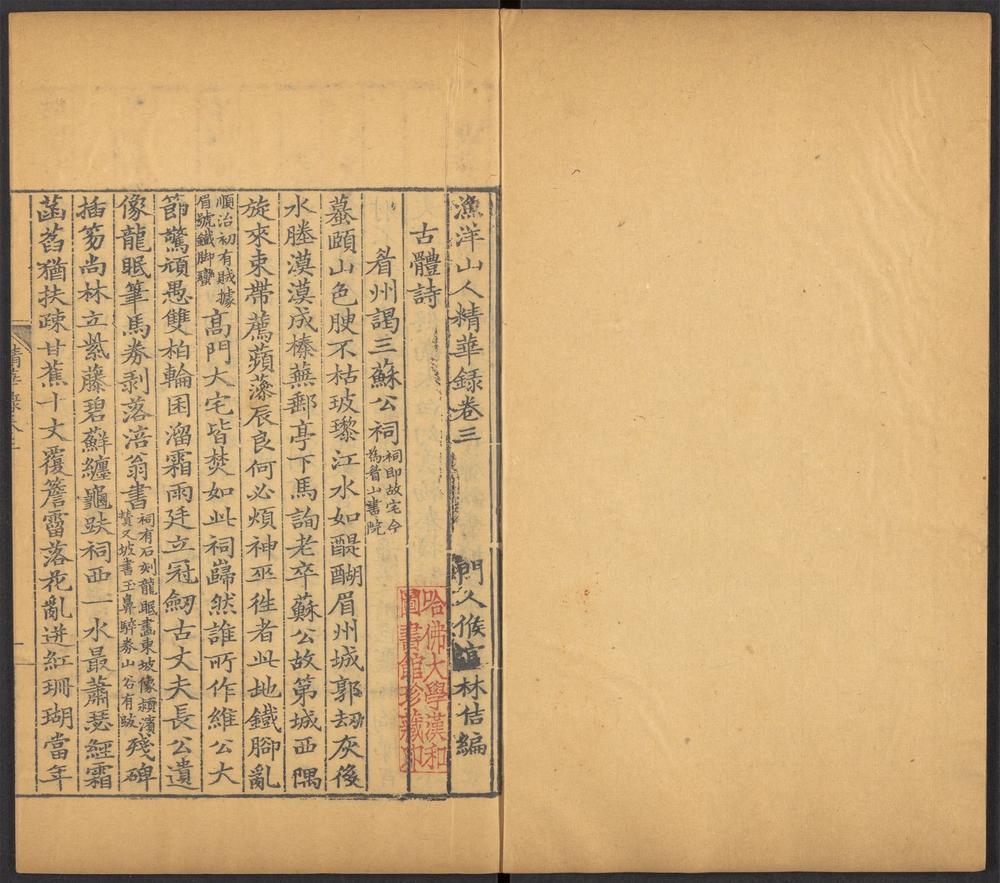 漁洋山人精華錄卷三
門人侯官林佶編
古體詩
眉州謁三蘇公祠祠即故宅今為眉山書院
蟇頤山色腴不枯玻瓈江水如醍醐眉州城郭刼灰後
水塍漠漠成榛蕪郵亭下馬詢老卒蘇公故第城西隅
旋來束帶薦蘋藻辰良何必煩神巫徃者此地鐵腳亂
順治初有賊據眉號鐵脚蠻高門大宅皆焚如此祠巋然誰所作維公大
節驚頑愚雙柏輪囷溜霜雨廷立冠劒古丈夫長公遺
像龍眠筆馬券剥落涪翁書祠有石刻龍眠畫東坡像潁濱贊又坡書玉鼻騂券山谷有跋殘碑
插笏尚林立紫藤碧蘚纏龜趺祠西一水最蕭瑟經霜
菡萏猶扶疎甘蕉十丈覆簷霤落花亂迸紅珊瑚當年
精華錄卷三
一
哈佛大學漢和圖書館珍藏印